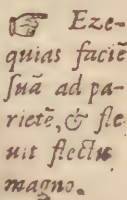 ☞ Eze-
quias faciē
ſuā ad pa-
rietē, & fle
uit fletu
magno.